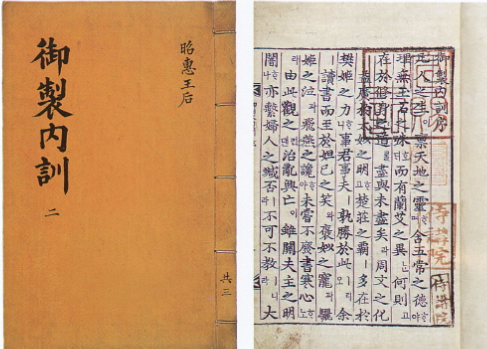 昭惠王后
御製內訓
二
共三
御製內訓序
凡人之生이 禀天地之靈 含五常之德
理無玉石之殊 而有蘭艾之異 何則고
在於修身之道 盡與未盡矣라 周文之化
益廣於太姒之明 楚莊之覇 多在於
樊姬之力 事君事夫 孰勝於此 余
讀書而至於妲己之笑와 褒姒之寵과 驪
姬之泣과 飛燕之讒 未嘗不廢書寒心
由此觀之 治亂興亡이 雖關夫主之明
闇 亦繫婦人之臧否라 不可不教 大
侍講院
侍講院